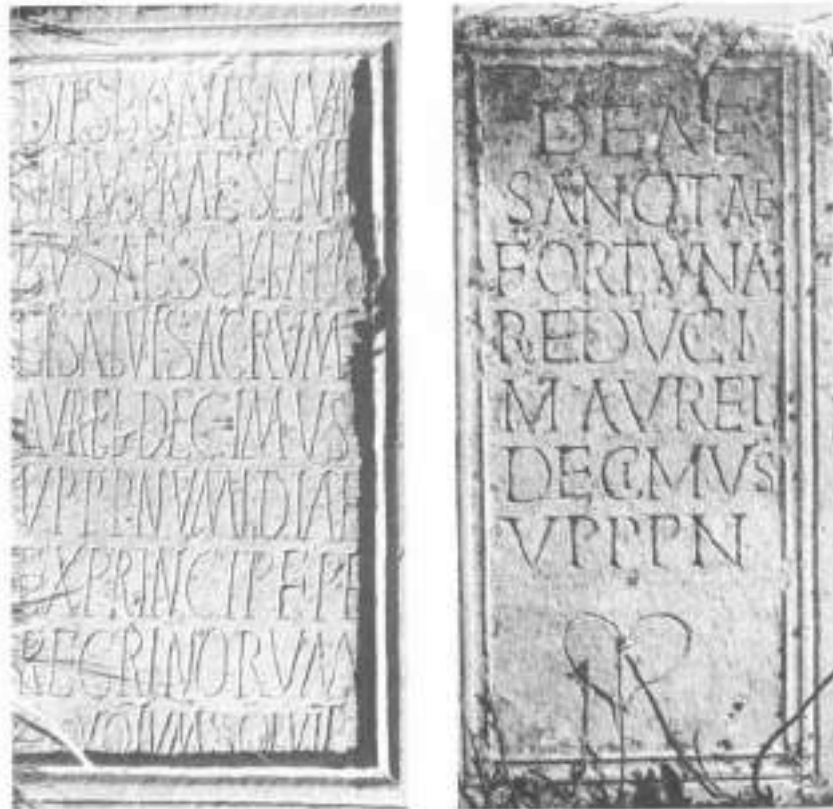 DIIS·BONIS·NVM
NIBVS·PRAESENTI
BVS·AESCVLAPIO
ET SALVTI SACRVM
AVREL·DECIMVS
VPPP·NVMIDIAE
EXPRINCIPE·PE
REGRINORVM
VOTVM SOLVIT
DEAE
SANCTAE
FORTVNAE
REDVCI
M AVREL
DECIMVS
VPPPN